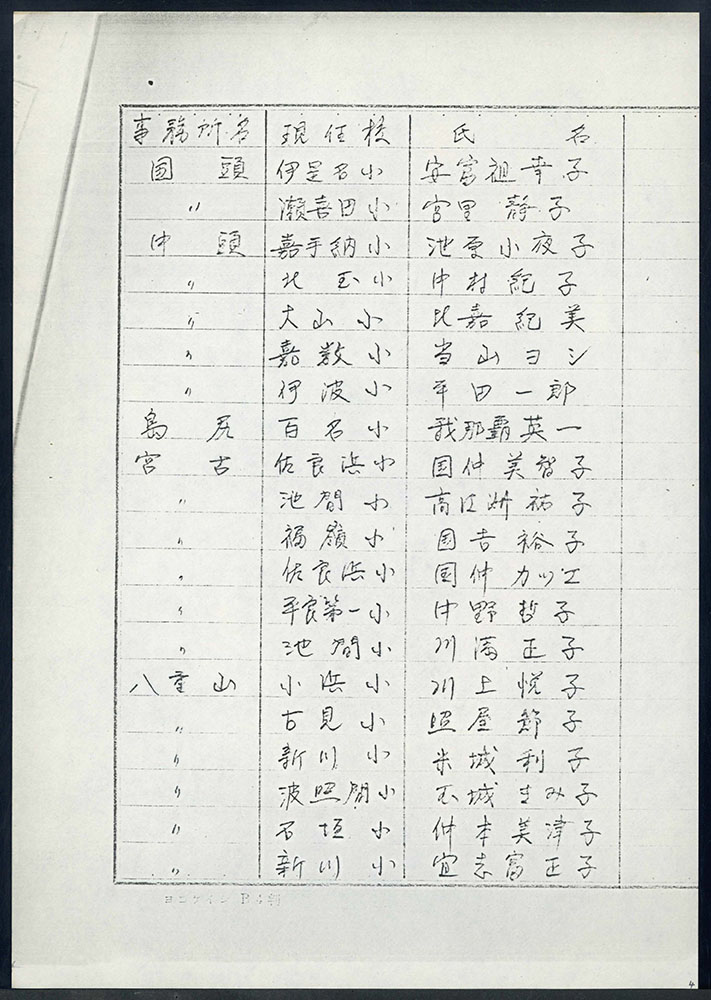 事務所名 現任校 氏名
国頭 伊是名小 安富祖幸子
〃 瀬喜田小 宮里静子
中頭 嘉手納小 池原小夜子
〃 北玉小 中村紀子
〃 大山小 比嘉紀美
〃 嘉数小 当山ヨシ
〃 伊波小 平田一郎
島尻 百名小 我那覇英一
宮古 佐良浜小 国仲美智子
〃 池間小 高江洲祐子
〃 福嶺小 国吉裕子
〃 佐良浜小 国仲カツエ
〃 平良第一小 中野哲子
〃 池間小 川満正子
八重山 小浜小 川上悦子
〃 古見小 照屋節子
〃 新川小 米城利子
〃 波照間小 城まみ子
〃 石垣小 仲本美津子
〃 新川小 宜志富正子
4